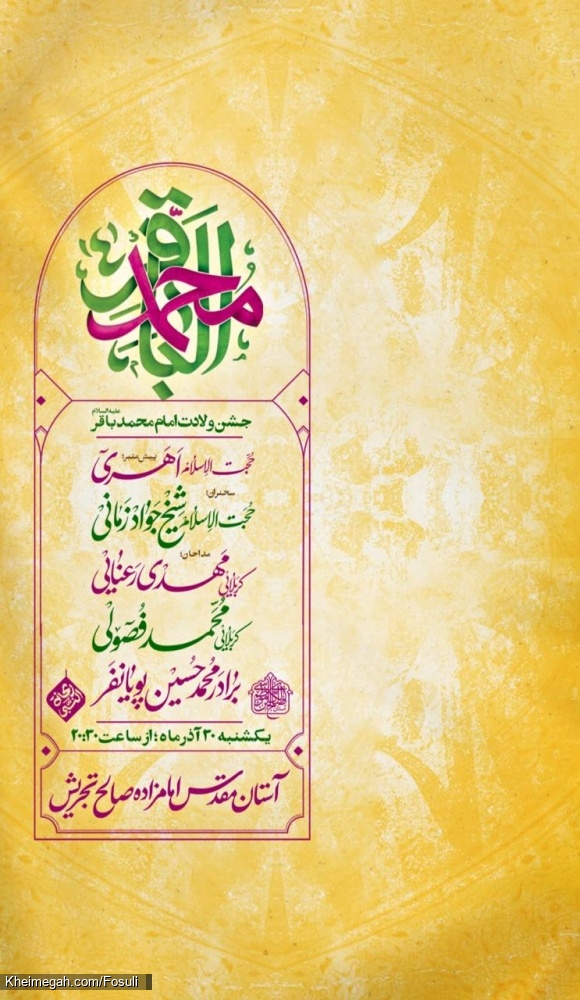 محمد الباقر
جشن ولادت امام محمد باقر علیه‌السلام
پیش منبر:
حجت الاسلام اهری
سخنران:
حجت الاسلام شیخ جواد زمانی
مداحان:
کربلایی مهدی رعنایی
کربلایی محمد فصولی
برادر محمد حسین پویانفر
یکشنبه ۳۰ آذر ماه ؛ از ساعت ۲۰:۳۰
آستان مقدس امامزاده صالح تجریش
Kheimegah.com/Fosuli